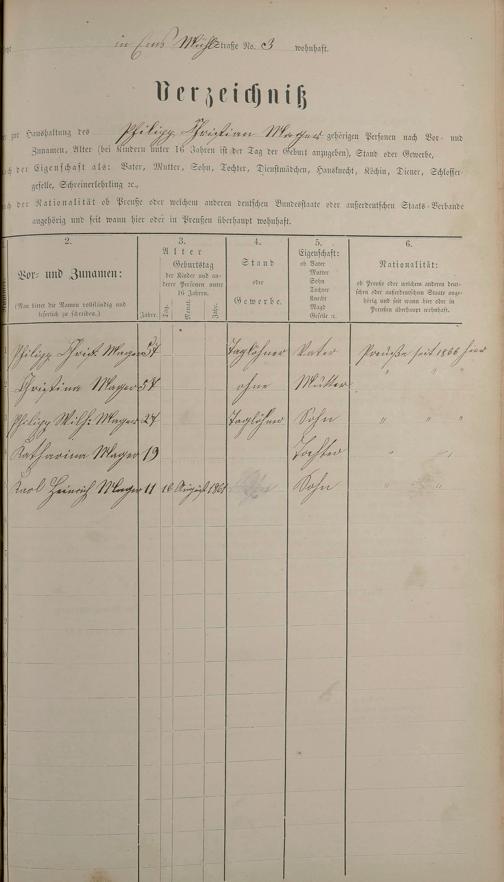 in Ems Mühlstraße No. 3 wohnhaft.
Verzeichniß
zur Haushaltung des Philipp Christian Mager gehörigen Personen nach Vor- und
Zunamen, Alter (bei Kindern unter 16 Jahren ist der Tag der Geburt anzugeben), Stand oder Gewerbe,
nach der Eigenschaft als: Vater, Mutter, Sohn, Tochter, Dienstmädchen, Hausknecht, Köchin, Diener, Schlosser-
geselle, Schreinerlehrling ꝛc.,
nach der Nationalität ob Preuße oder welchem anderen deutschen Bundesstaate oder außerdeutschen Staats-Verbande
angehörig und seit wann hier oder in Preußen überhaupt wohnhaft.
2. 3. 4. 5. 6.
Vor- und Zunamen:
(Man bittet die Namen vollständig und
leserlich zu schreiben.)
Alter
Geburtstag
der Kinder und an-
derer Personen unter
16 Jahren.
Jahre. Tag. Monat. Jahr.
Stand
oder
Gewerbe.
Eigenschaft:
ob Vater
Mutter
Sohn
Tochter
Knecht
Magd
Geselle ꝛc.
Nationalität:
ob Preuße oder welchem anderen deut-
schen oder außerdeutschen Staate ange-
hörig und seit wann hier oder in
Preußen überhaupt wohnhaft.
Philipp Christ. Mager 57 Taglöhner Vater Preuße seit 1866 hier
Christina Mager 57 ohne Mutter " " "
Philipp Wilh. Mager 27 Taglöhner Sohn " " "
Katharina Mager 19 Tochter " "
Karl Heinrich Mager 11 16 August 1861 Sohn " "